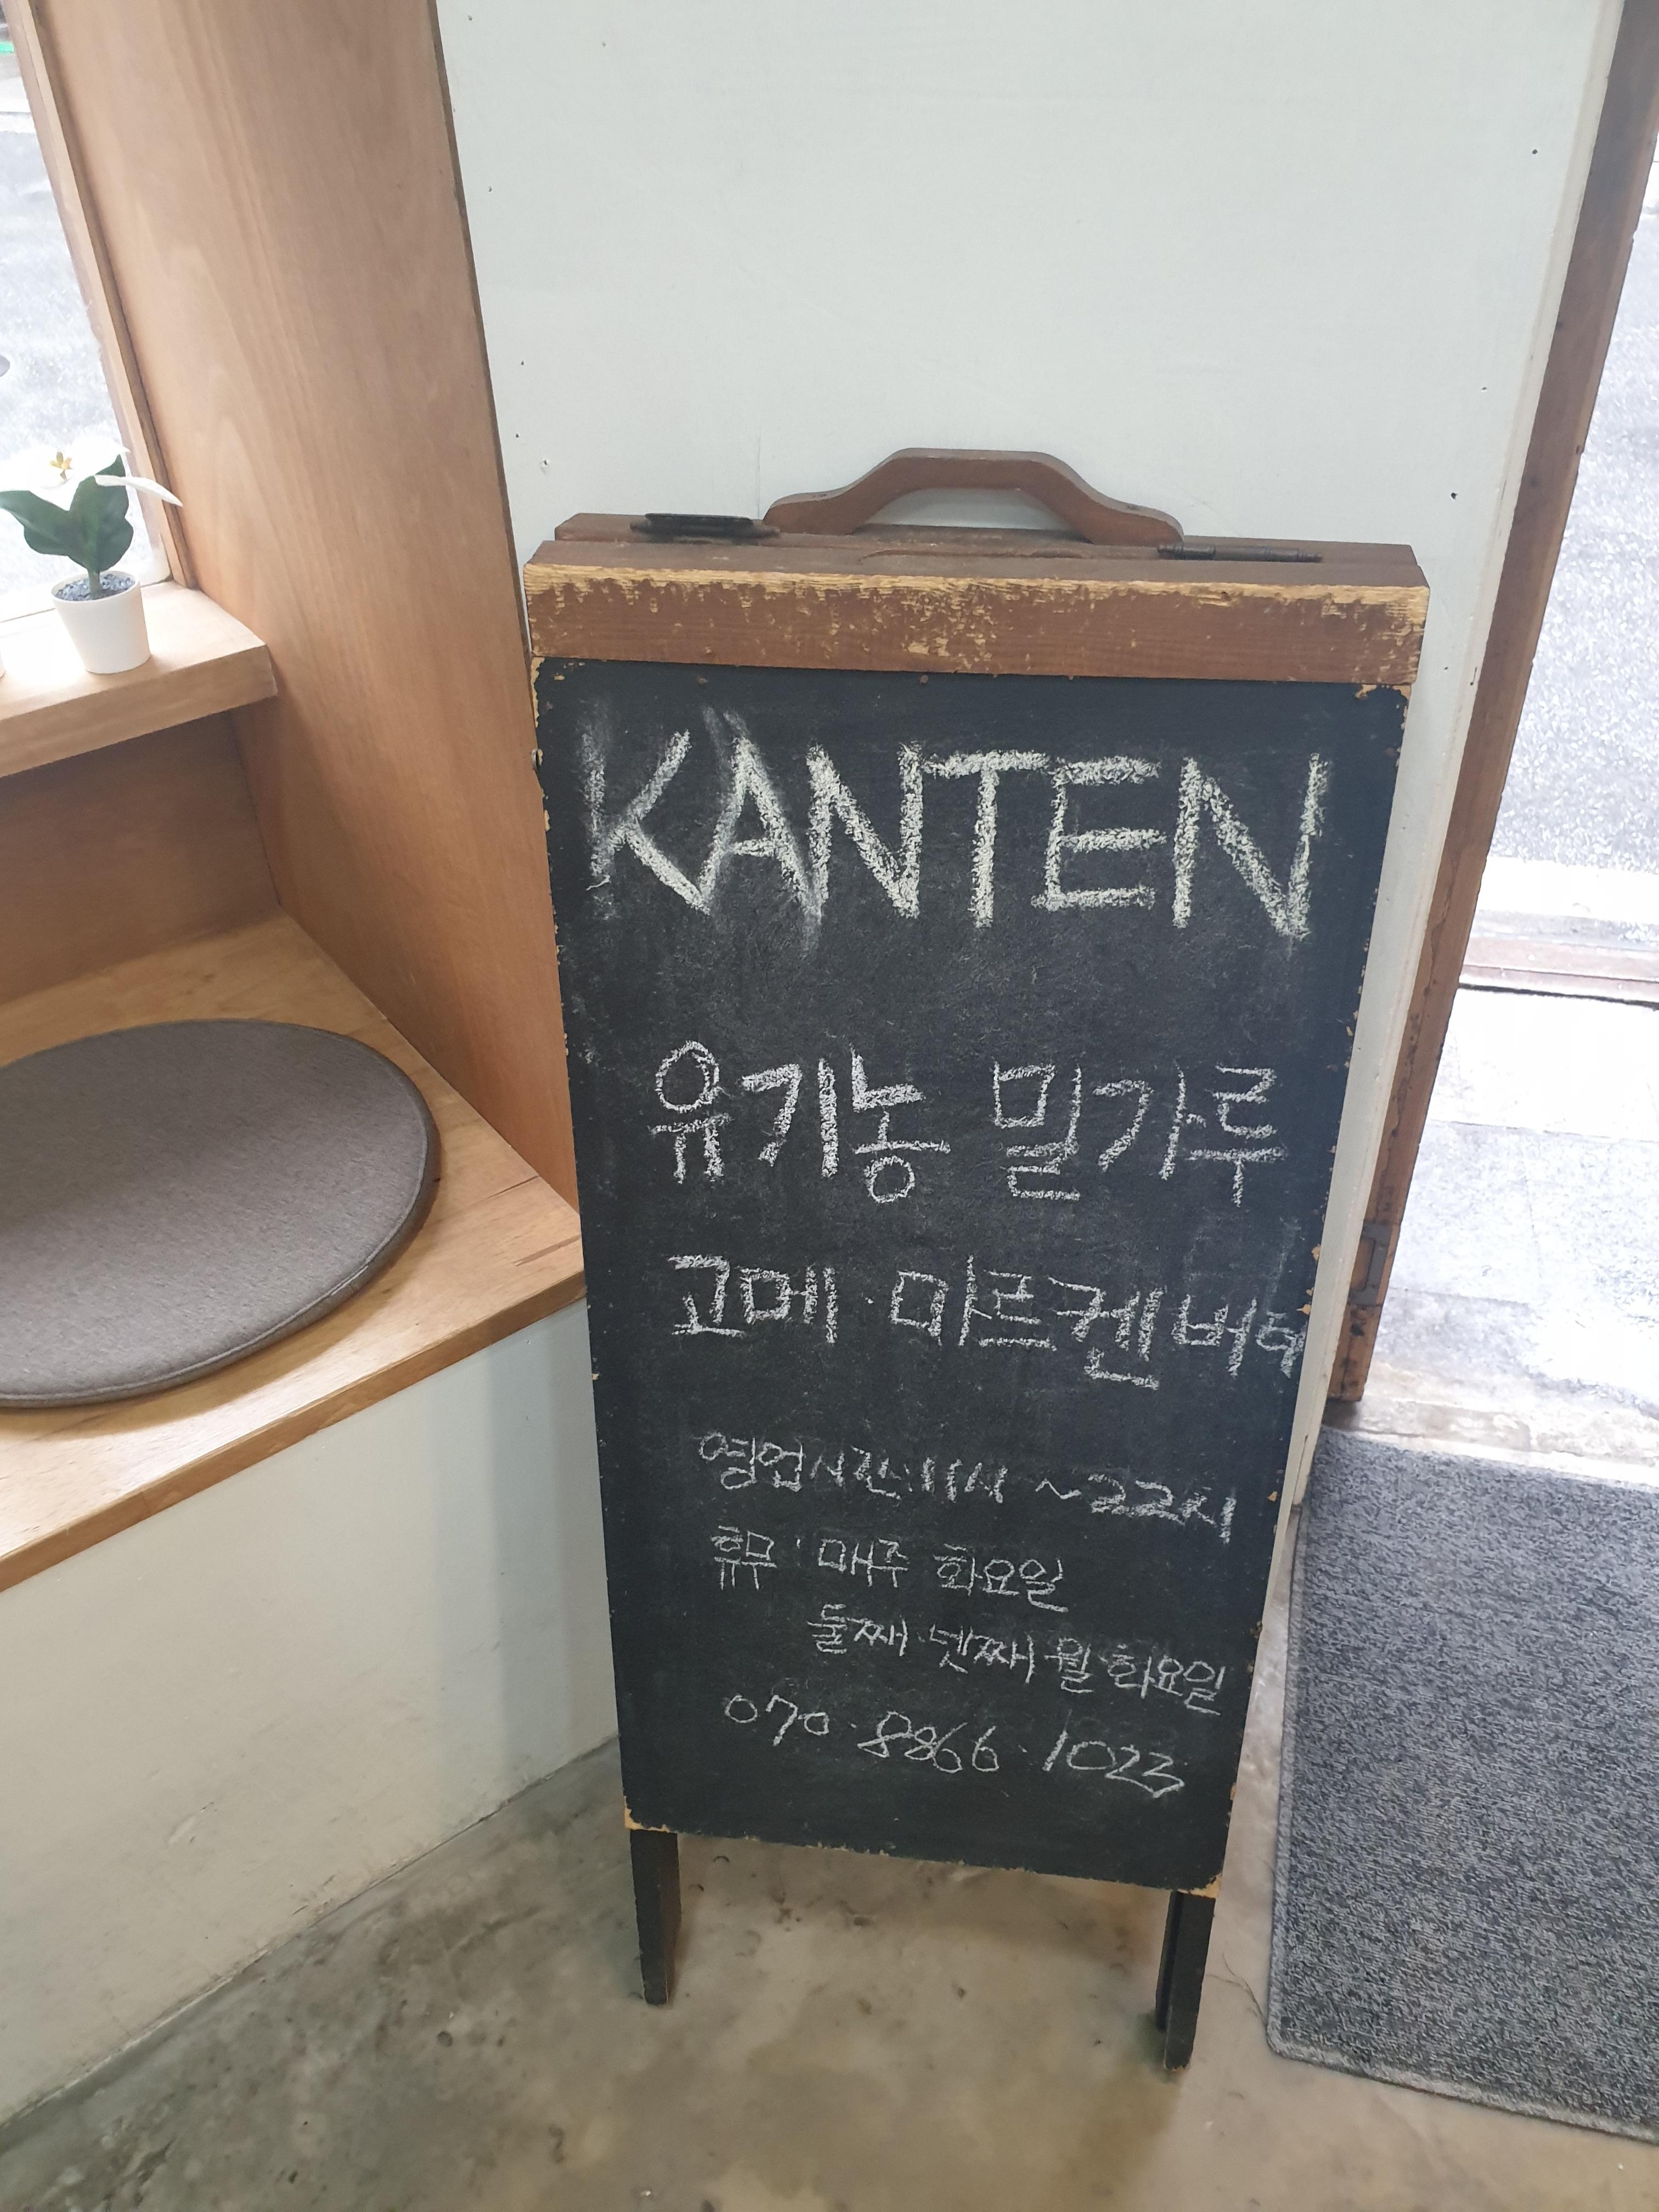 KANTEN
유기농 밀가루
고메·마르켄버터
영업시간:11시 ~22시
휴무:매주 화요일
둘째·넷째 월·화요일
070·8866·1023